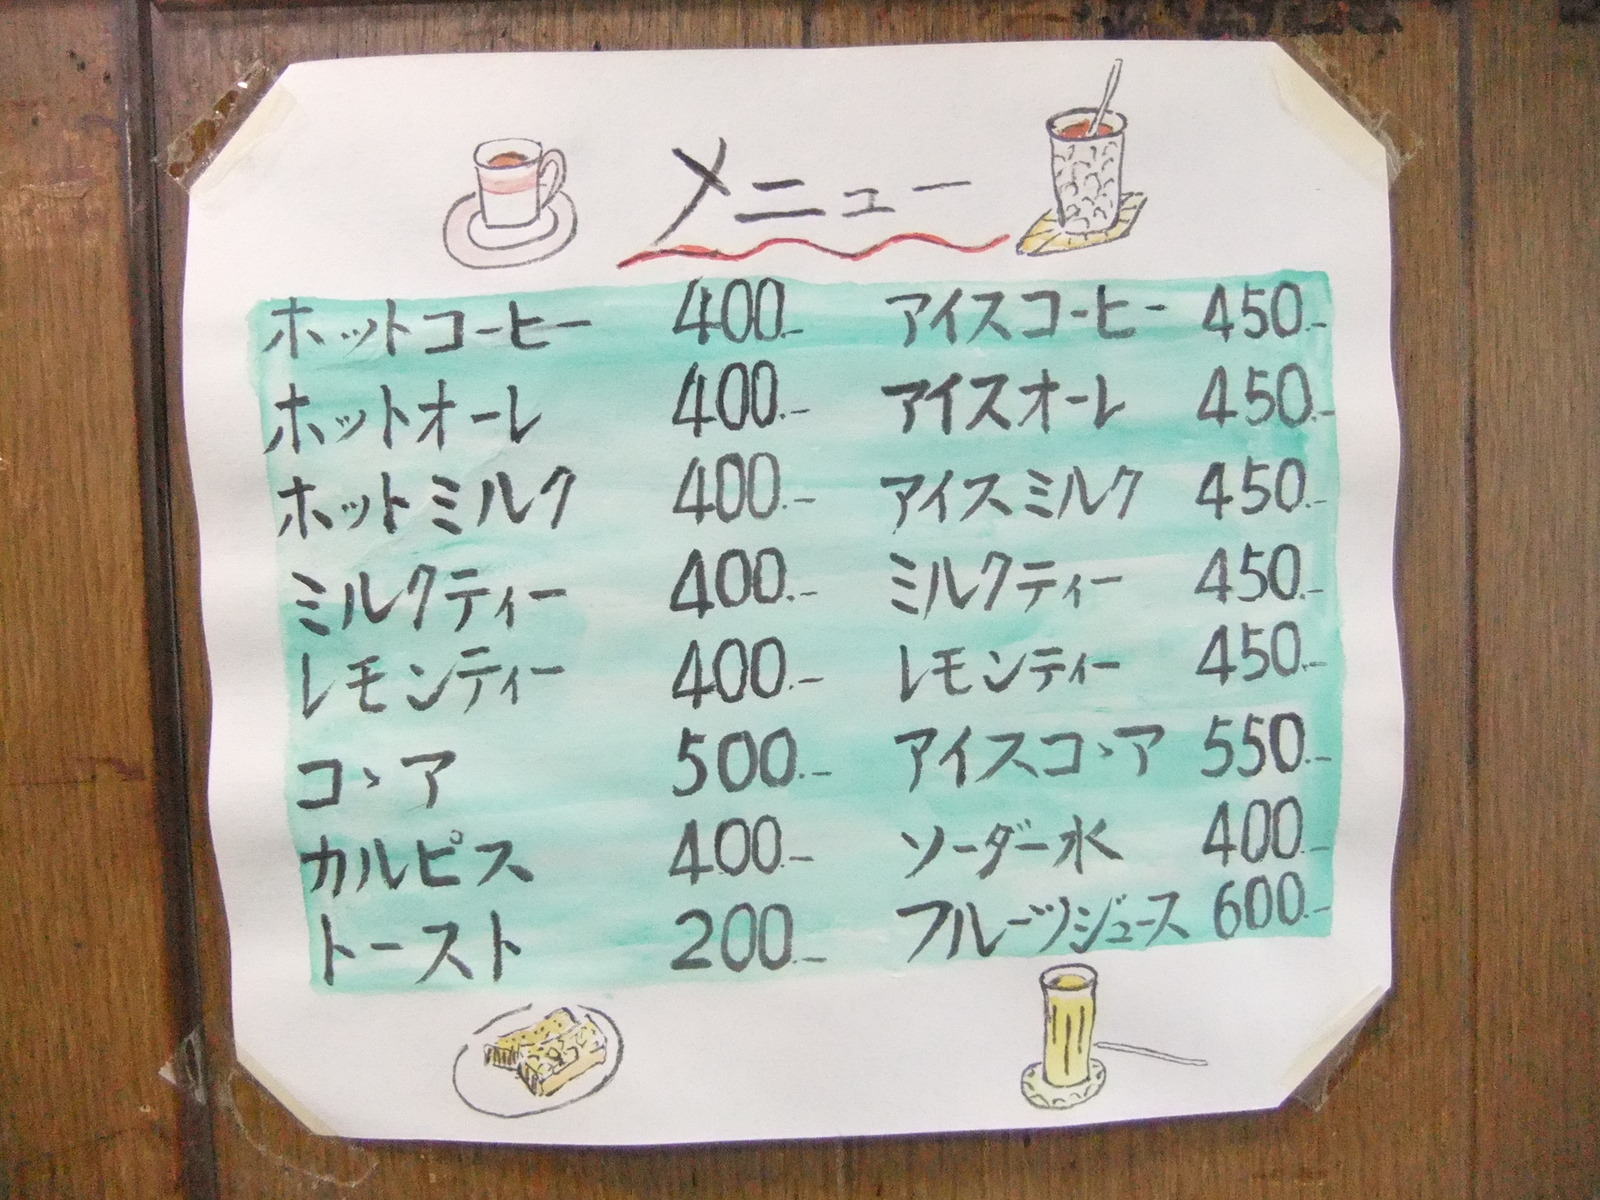 メニュー
ホットコーヒー 400.- アイスコーヒー 450.-
ホットオーレ 400.- アイスオーレ 450.-
ホットミルク 400.- アイスミルク 450.-
ミルクティー 400.- ミルクティー 450.-
レモンティー 400.- レモンティー 450.-
コヽア 500.- アイスコヽア 550.-
カルピス 400.- ソーダー水 400.-
トースト 200.- フルーツジュース 600.-